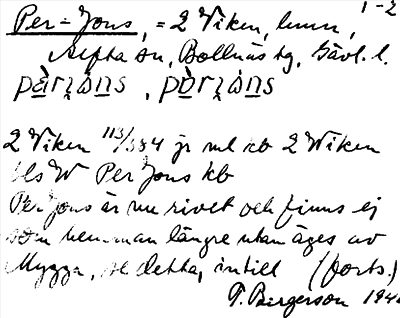 1-2
Per-Jons, = 2 Viken, hemm,
Alfta sn, Bollnäs tg, Gävl. l.
2 Viken 113/384 jr ml kb 2 Wiken
Us W Per Jons kb
Per Jons är nu rivet och finns ej
som hemman längre utan äges av
Mygga, se detta, intill (forts.)
T. Bergerson 194